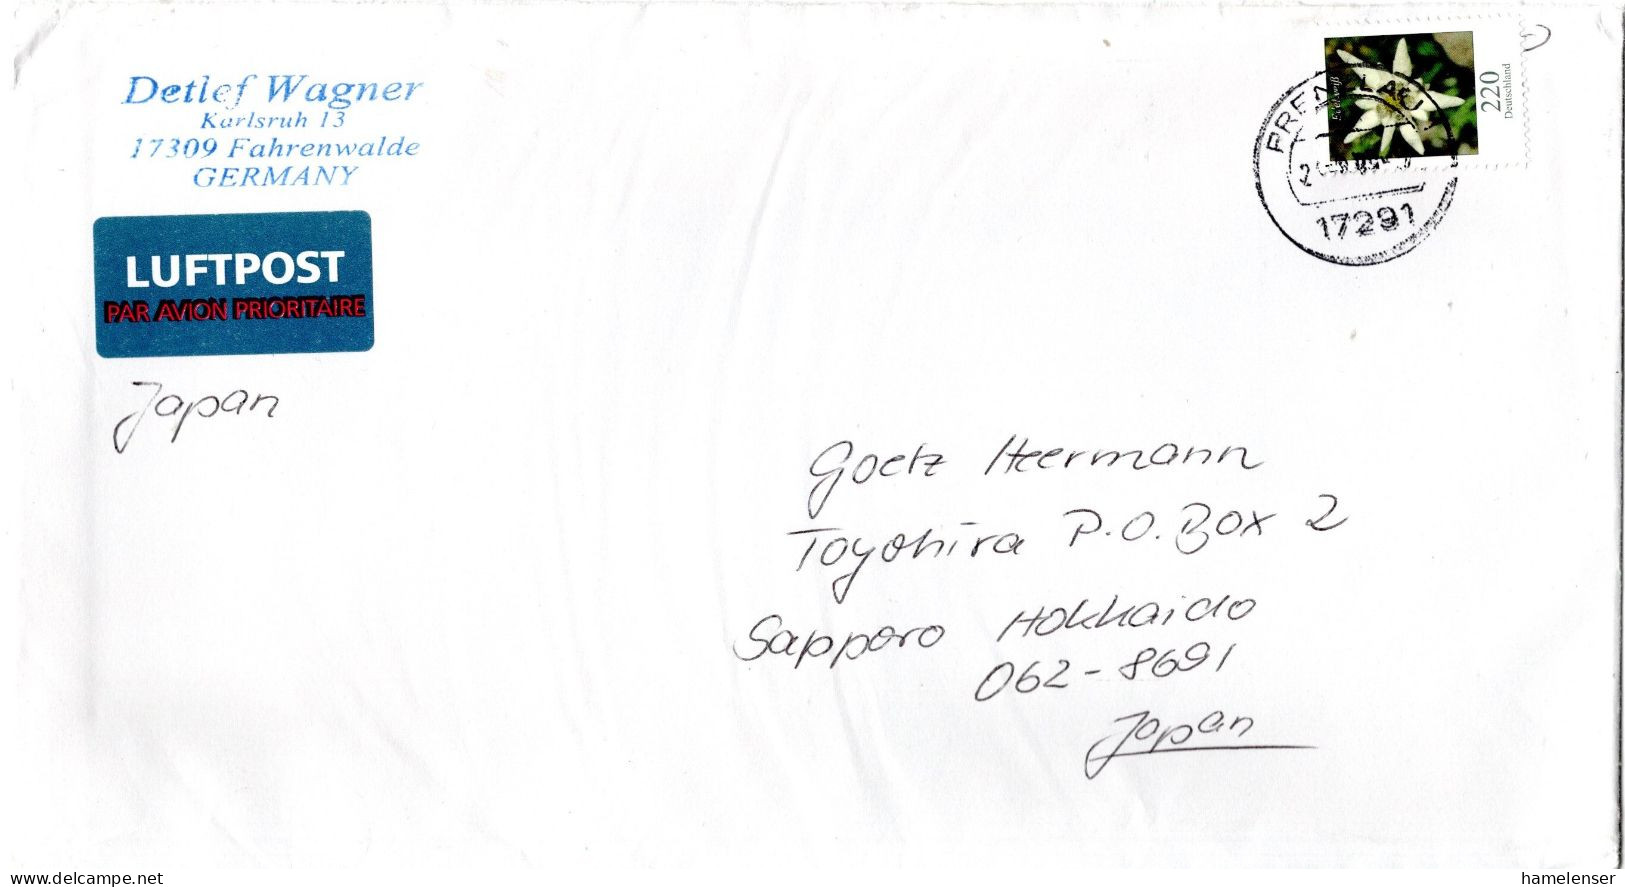 Detlef Wagner
Karlsruh 13
17309 Fahrenwalde
GERMANY
LUFTPOST
PAR AVION PRIORITAIRE
Japan
Edelweiß
220
Deutschland
PRENZLAU 1
17291
Goetz Heermann
Toyohira P.O. Box 2
Sapporo Hokkaido
062-8691
Japan
www.delcampe.net
hamelenser